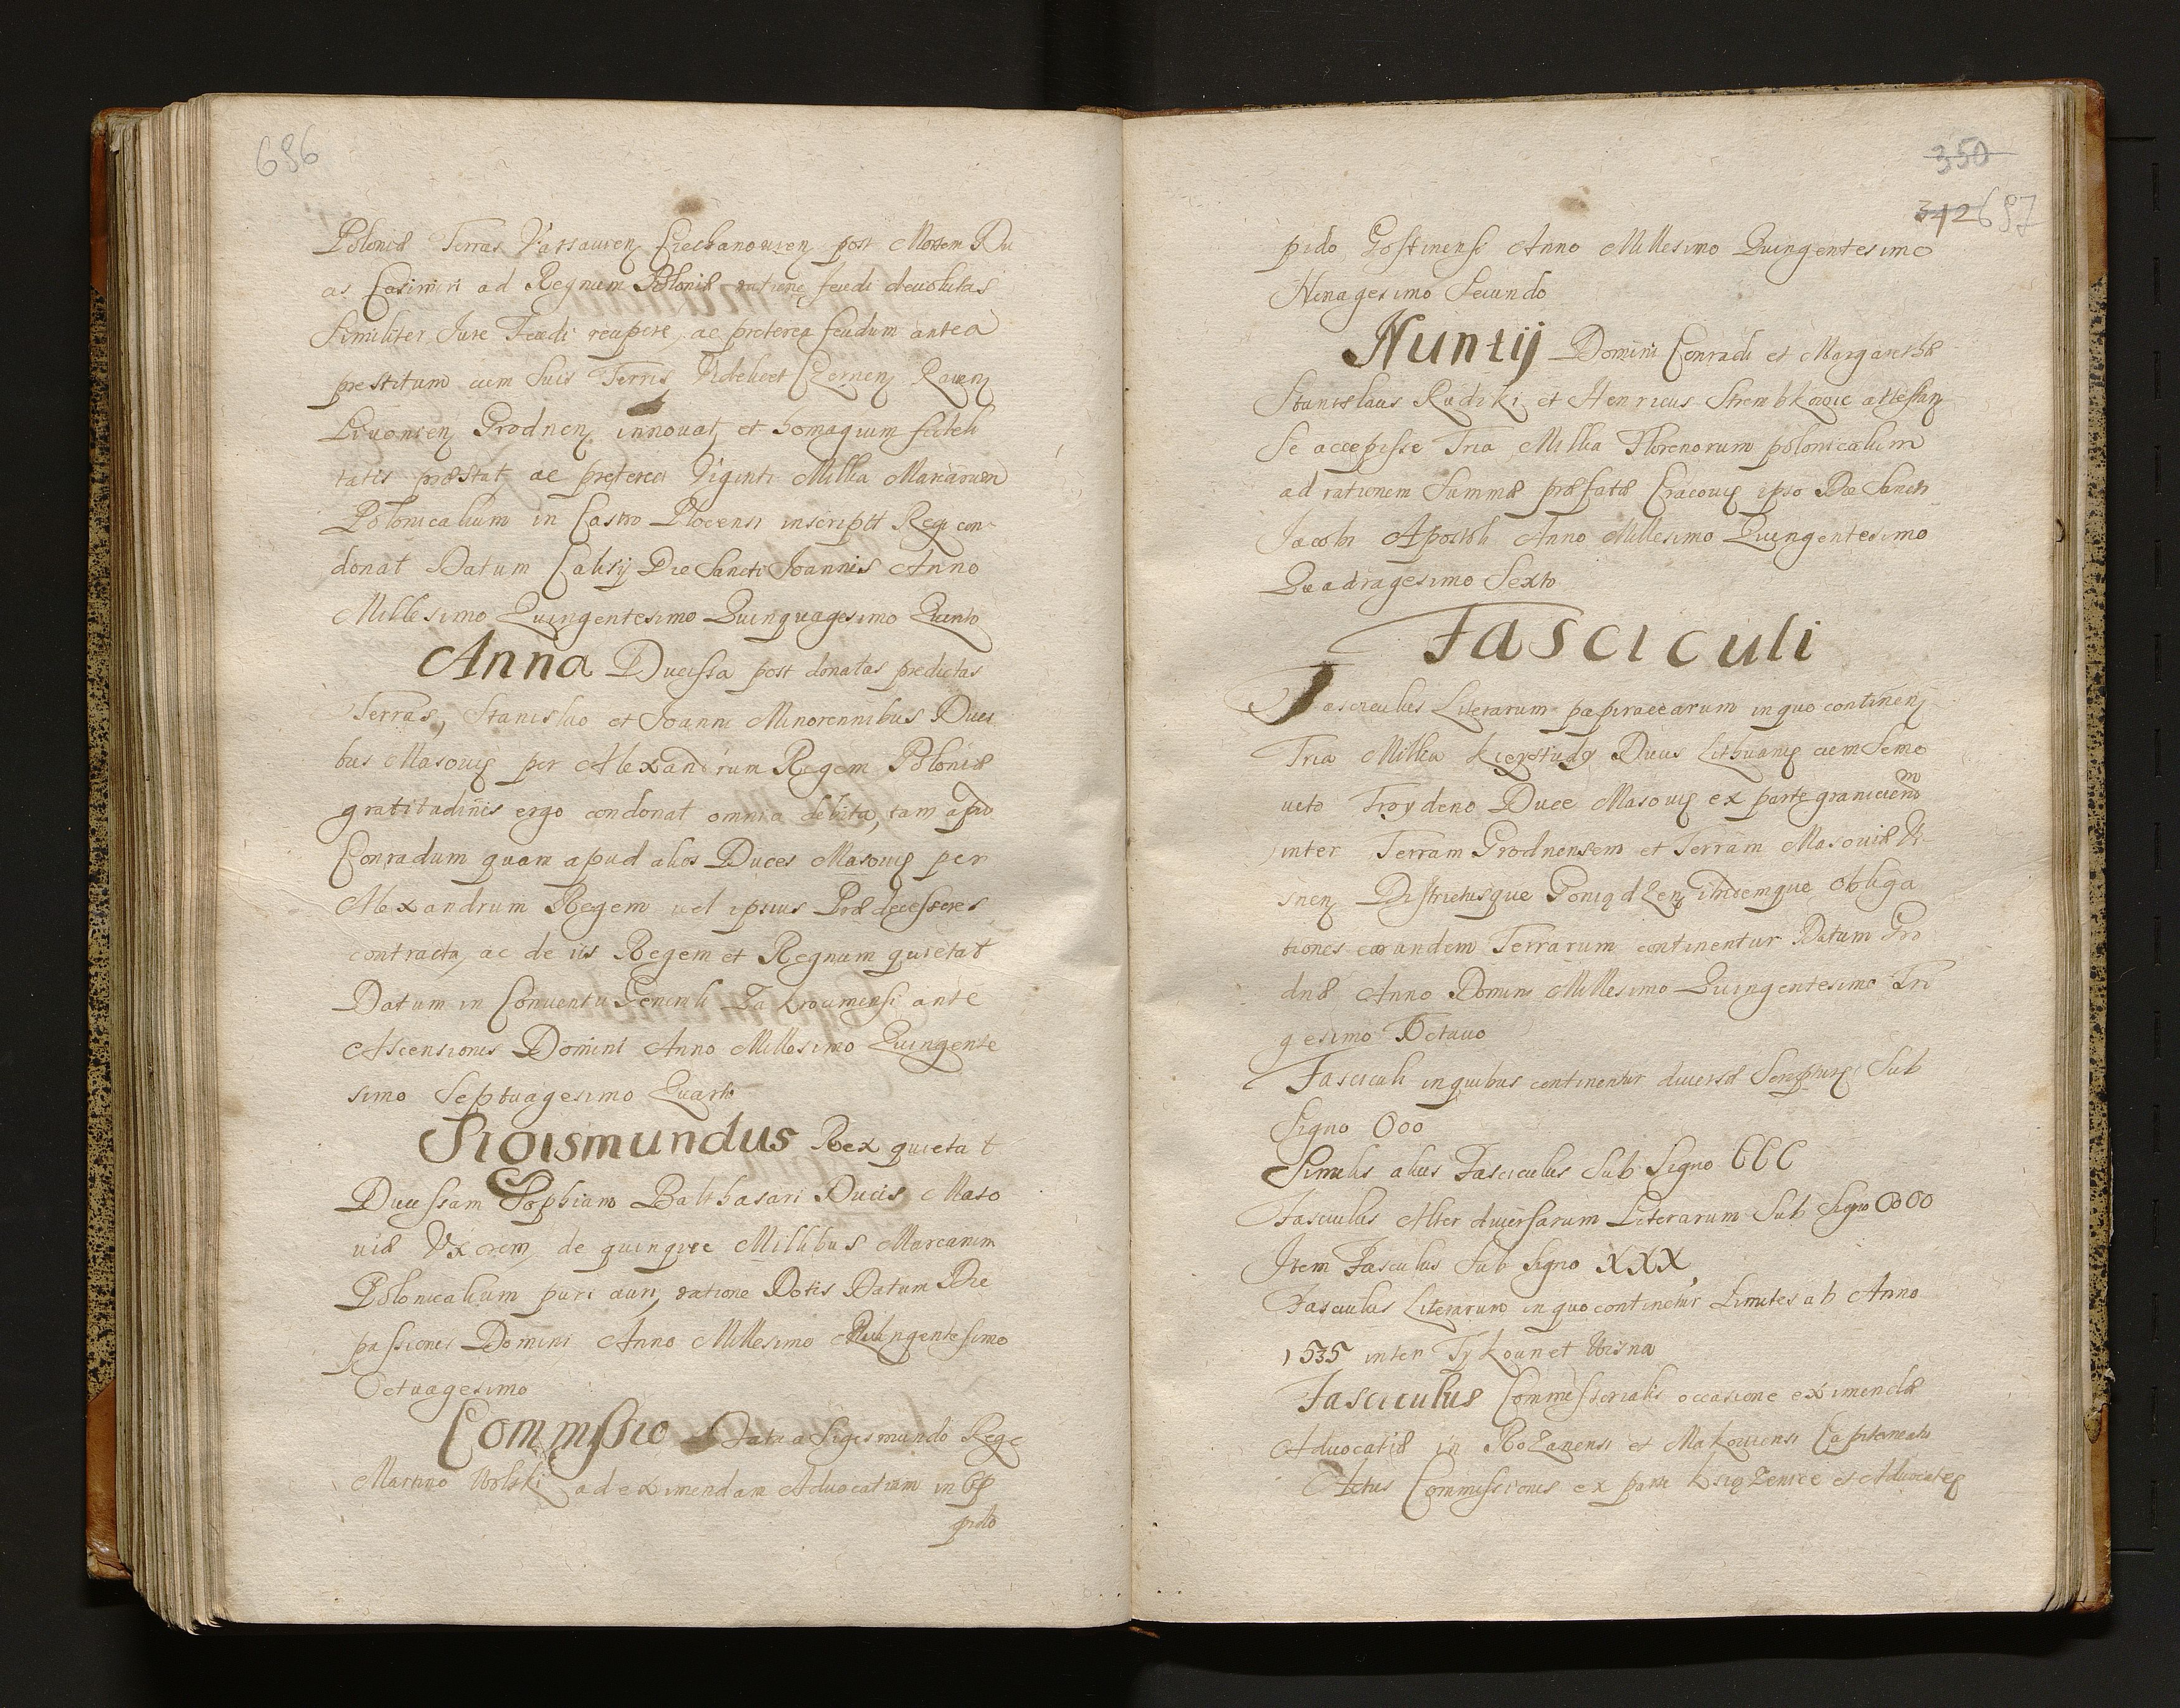 686
Poloniæ Terras Varsauien Ciechanouien post Mortem Du
as Casimiri ad Regnum Poloniæ ratione feudi deuolutas
Similiter Jure Feudi recipere, ac preterea feudum antea
prestitum cum Suis Terris Videlicet Czernen Rauen
Liuonien Grodnen innouat et homagium fideli
tatis præstat, ac preterea Viginti Millia Marcarum
Polonicalium in Castro Plocensi inscript Regi con-
donat Datum Calisij Die Sancti Joannis Anno
Millesimo Quingentesimo Quinquagesimo Quinto
Anna Ducissa post donatas predictas
Terras, Stanislao et Joanni Minorennibus Duci
bus Masouię per Alexandrum Regem Poloniæ
gratitudinis ergo condonat omnia debita, tam apud
Conradum quam apud alios Duces Masouię per
Alexandrum Regem uel ipsius Prædecessores
contracta, ac de iis Regem et Regnum quietat
Datum in Conuentu Generali Zakroumensi ante
Ascensionis Domini Anno Millesimo Quingente
simo Septuagesimo Quarto
Sigismundus Rex quietat
Ducissam Sophiam Balthasari Ducis Maso
uiæ Vxorem, de quinque Millibus Marcarum
Polonicalium puri auri, ratione Dotis Datum Die
passionis Domini Anno Millesimo Quingentesimo
Octuagesimo
Commissio Data a Sigismundo Rege
Martino Wolski ad eximendam Aduocatiam in Op
pido
350
342 687
pido Gostinensi Anno Millesimo Quingentesimo
Nonagesimo Secundo
Nuntij Domini Conradi et Margarethæ
Stanislaus Rudzki et Henricus Strembkowic attestan
Se accepisse Tria Millia Florenorum polonicalium
ad rationem Summæ præfatæ Cracouię ipso Die Sancti
Jacobi Apostoli Anno Millesimo Quingentesimo
Quadragesimo Sexto
Fasciculi
Fasciculus Literarum papiracearum in quo continen
Tria Millia Kieystudy Ducis Lithuanię cum Semo
uito Troydeno Duce Masouię ex parte granicierum
inter Terram Grodnensem et Terram Masouiæ Vi-
snen Districtusque Goniądzen ibidemque obliga
tiones earundem Terrarum continentur Datum Gro
dnæ Anno Domini Millesimo Quingentesimo Tri
gesimo Octauo
Fasciculi in quibus continentur diuersæ Scripturę Sub
Signo Ooo
Similis alius Fasciculus Sub Signo CCC
Fasciculus Alter diuersarum Literarum Sub Signo OOOO
Item Fasculus Sub Signo XXX,
Fasciculus Literarum in quo continetur Limites ab Anno
1535 inter Tykoun et Wisna
Fasciculus Commissorialis occasione eximendæ
Aduocatiæ in Rozanensi et Makouiensi Capitaneatu
Actus Commissionis ex parte Książenice et Aduocatię